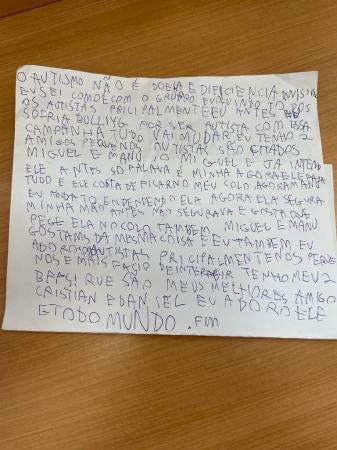 O AUTISMO NÃO É DOENÇA E DIFICIENCIA INVISIVE
EU SEI COMO É COM O GRUPO EVOLUINDO TODOS
OS AUTISTAS PRICIPALMENTE EU ANTES
SOFRIA BULLIYG POR SER AUTISTA COM ESSA
CAMPANHA TUDO VAI MUDAR EU TENHO 2
AMIGOS PEQUENOS AUTISTAS SÃO CITADOS
MIGUEL E MANU O MIGUEL EU JÁ INTENDI
ELE ANTES SO FALAVA É MINHA AGORA ELE FALA
TUDO E ELE GOSTA DE FICAR NO MEU COLO AGORA MANU
EU ANDATO ENDENDENDO ELA AGORA ELA SEGURA
MINHA MÃO ANTES NÃO SEGURAVA E GOSTA QUE
PEGE ELA NO COLO TAMBEM MIGUEL E MANU
GOSTAMS DA MESMA COISA E EU TAMBEM EU
ADORO AUTISTAS PRICIPALMENTE OS PEQUE
NOS E MAIS FACIO DE INTERAGIR TENHO MEU 2
BFFS! QUE SÃO MEUS MELHORES AMIGO
CRISTIAN E DANIEL EU ADORO ELE
E TODO MUNDO . FIM